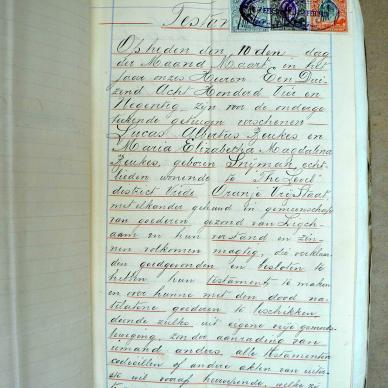 Testa
Op heden den 10den dag
der Maand Maart en het
jaar onzes Heeren Een Dui-
zend Acht Honderd Vier en
Negentig, zijn voor de onderge-
tekende getuigen verschenen
Lucas Albertus Beukes en
Maria Elizabetha Magdalena
Beukes, geboren Snijman echt-
lieden wonende te "The Level"
district Vrede Oranje Vrij Staat,
met elkander gehuwd in gemeenschap
van goederen, gezond van Ligch-
aam en hun verstand en zin-
nen volkomen magtig, die verklaar-
den goedgevonden en besloten te
hebben hun testament te maken
en over hunne met den dood na-
telatene goederen te beschikken,
doende zulks uit eigene vrije gemoeds-
beweging, zonder aanrading van
iemand anders, alle testamenten
codicillen of andere akten van uiter-
ste wil vooraf herroepende, welke